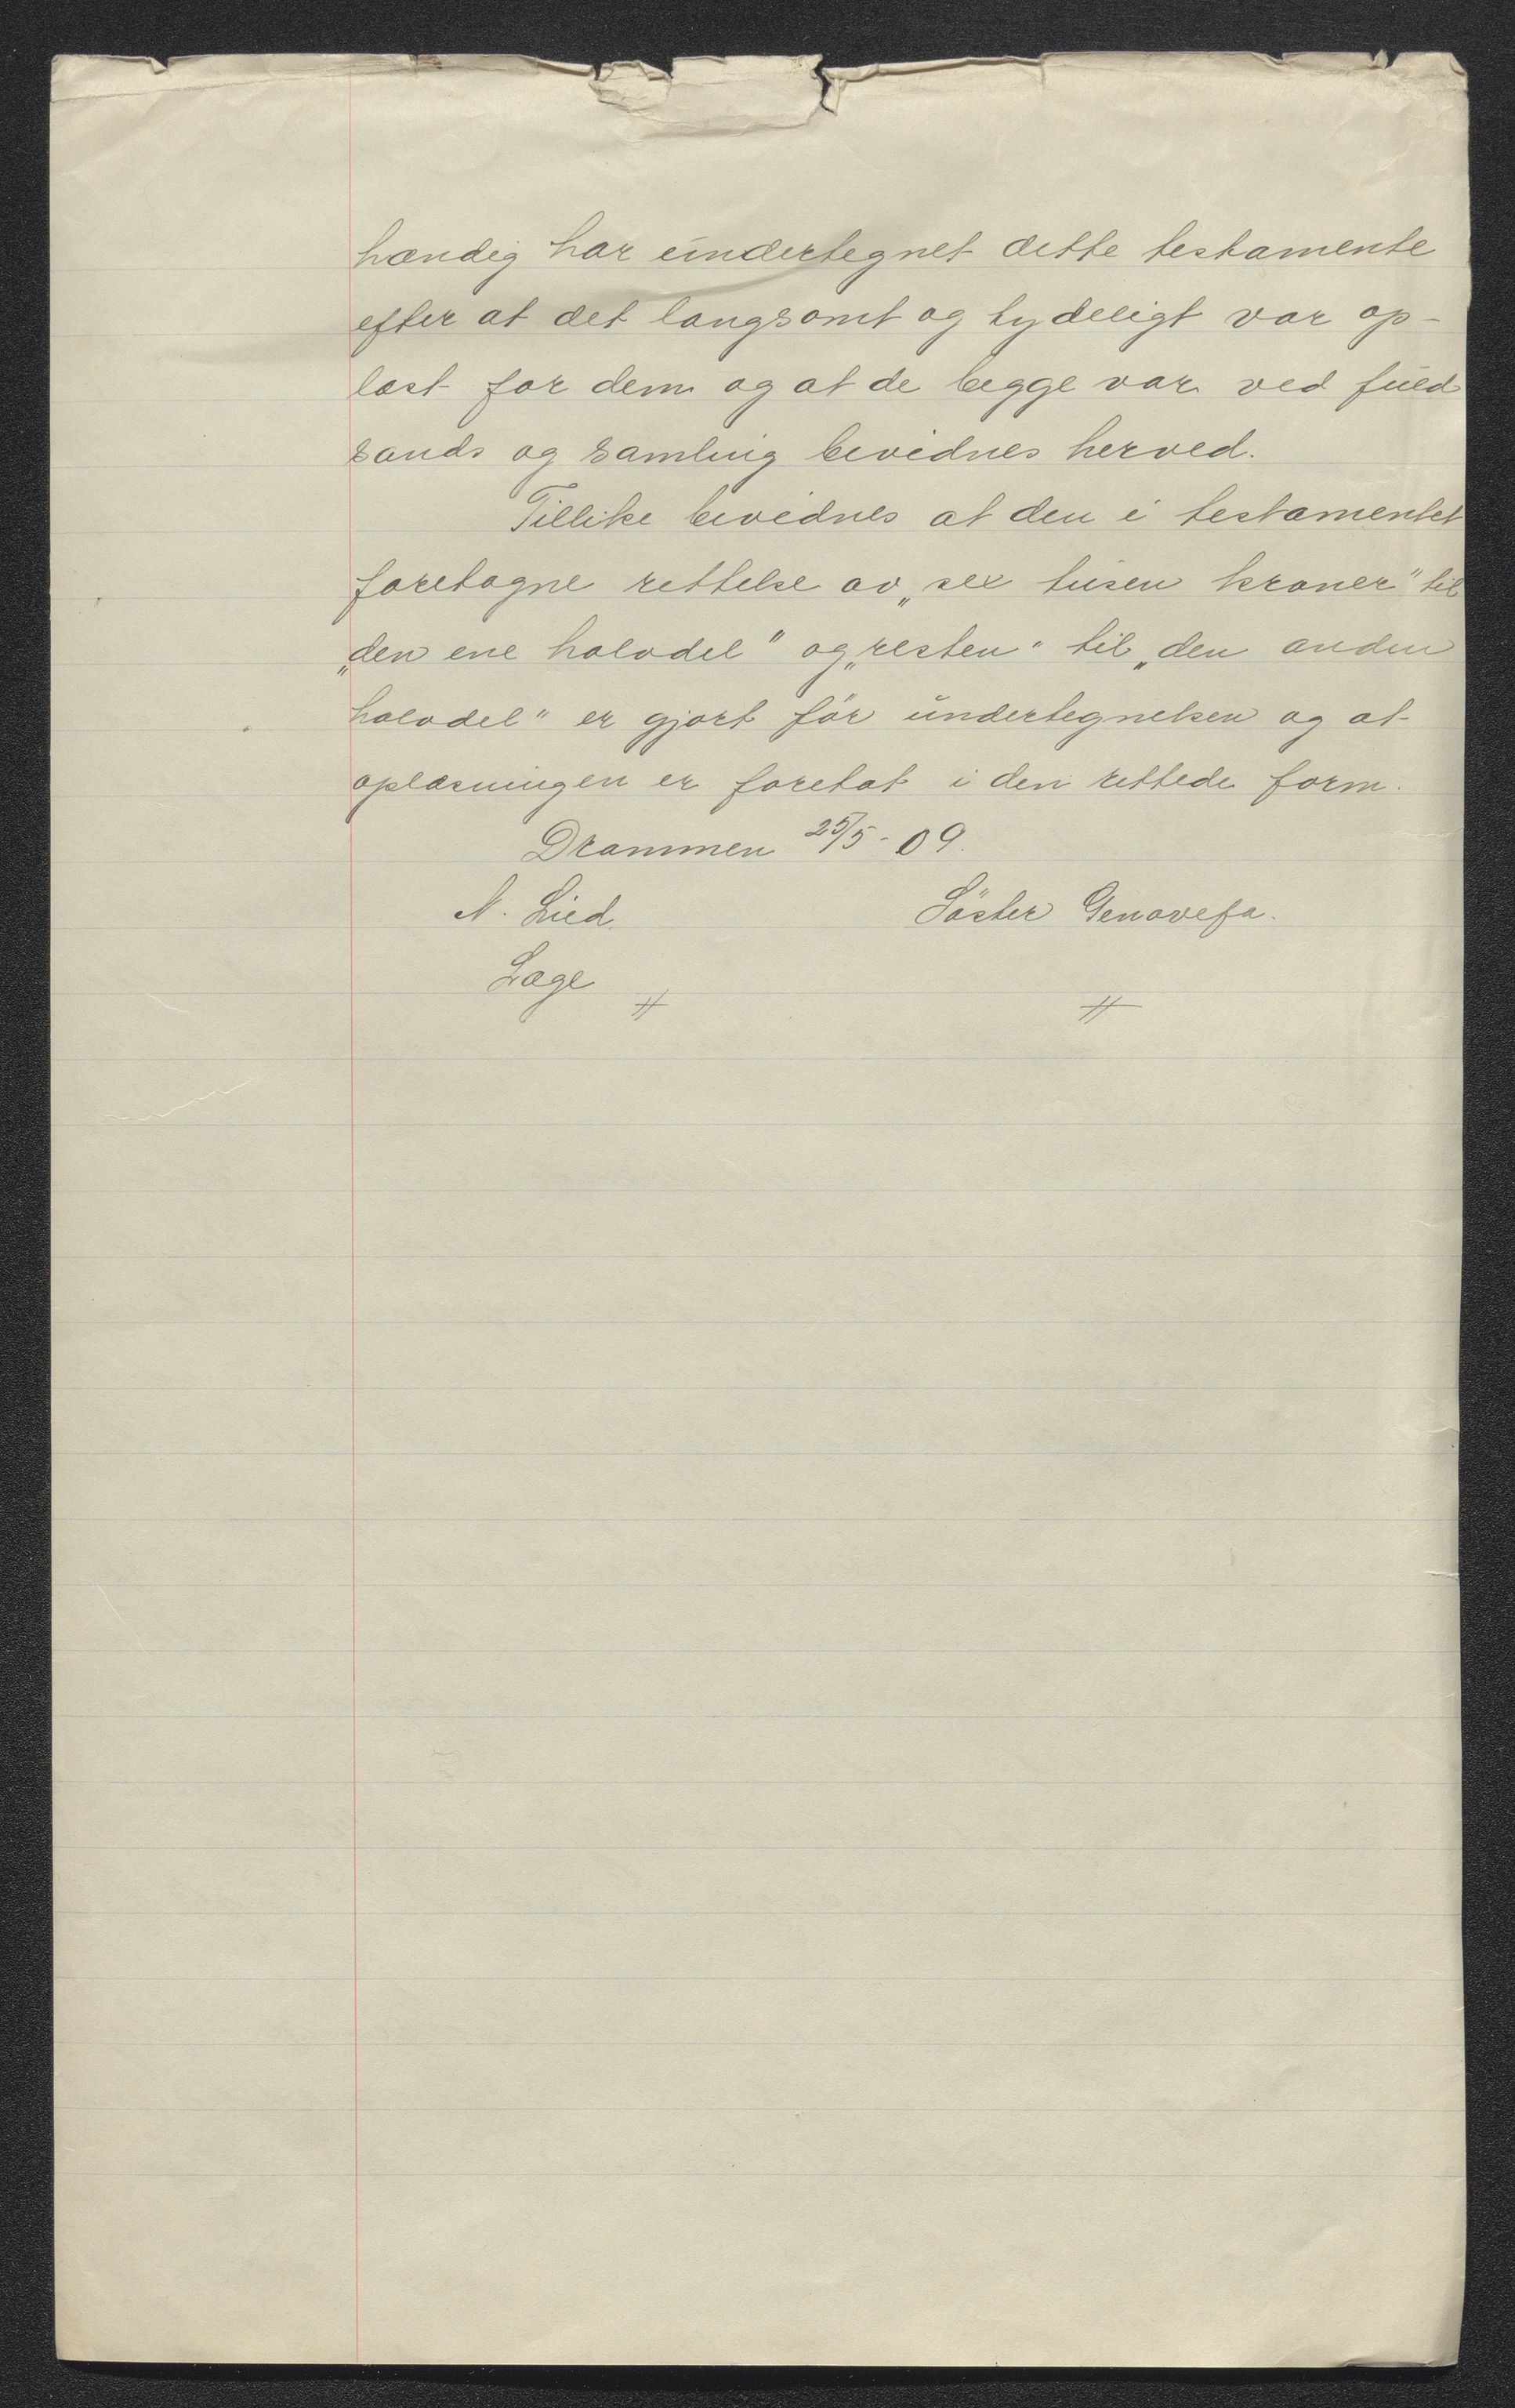 hændig har undertegnet dette testamente
efter at det langsomt og tydeligt var op-
læst for dem og at de begge var ved fuld
sands og samling bevidnes herved.
Tillike bevidnes at den i testamentet
foretagne rettelse av „sex tusen kroner" til
„den ene halvdel" og „resten" til „den anden
halvdel" er gjort før undertegnelsen og at
oplæsningen er foretat i den rettede form.
Drammen 25/5 - 09.
N. Lied. Söster Genovefa.
Læge